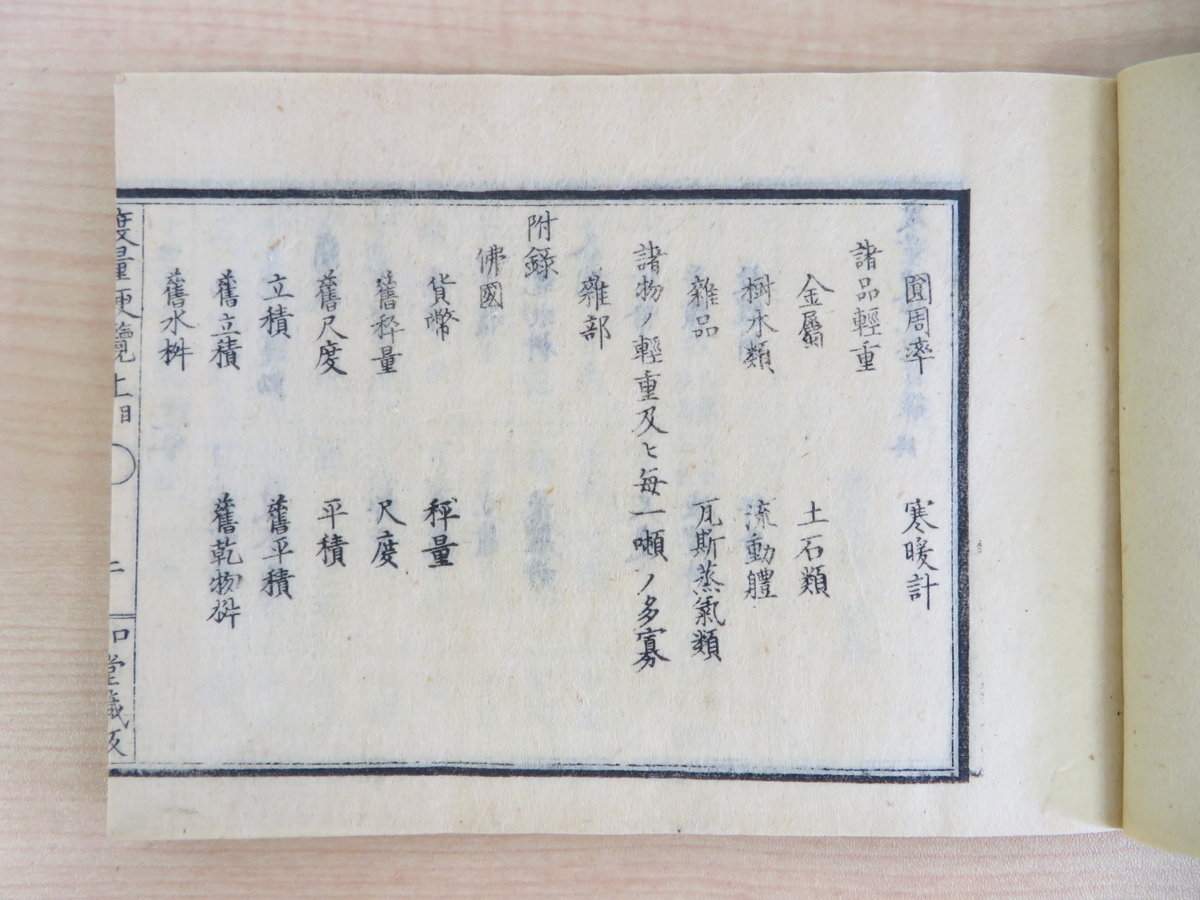 圓周率 寒暖計
諸品輕重
金屬 土石類
樹木類 流動體
雜品 瓦斯蒸氣類
諸物ノ輕重及ヒ每一噸ノ多寡
雜部
附錄
佛國
貨幣 秤量
舊秤量 尺度
舊尺度 平積
立積 舊平積
舊立積 舊乾物桝
舊水桝
度量便覽 上 目